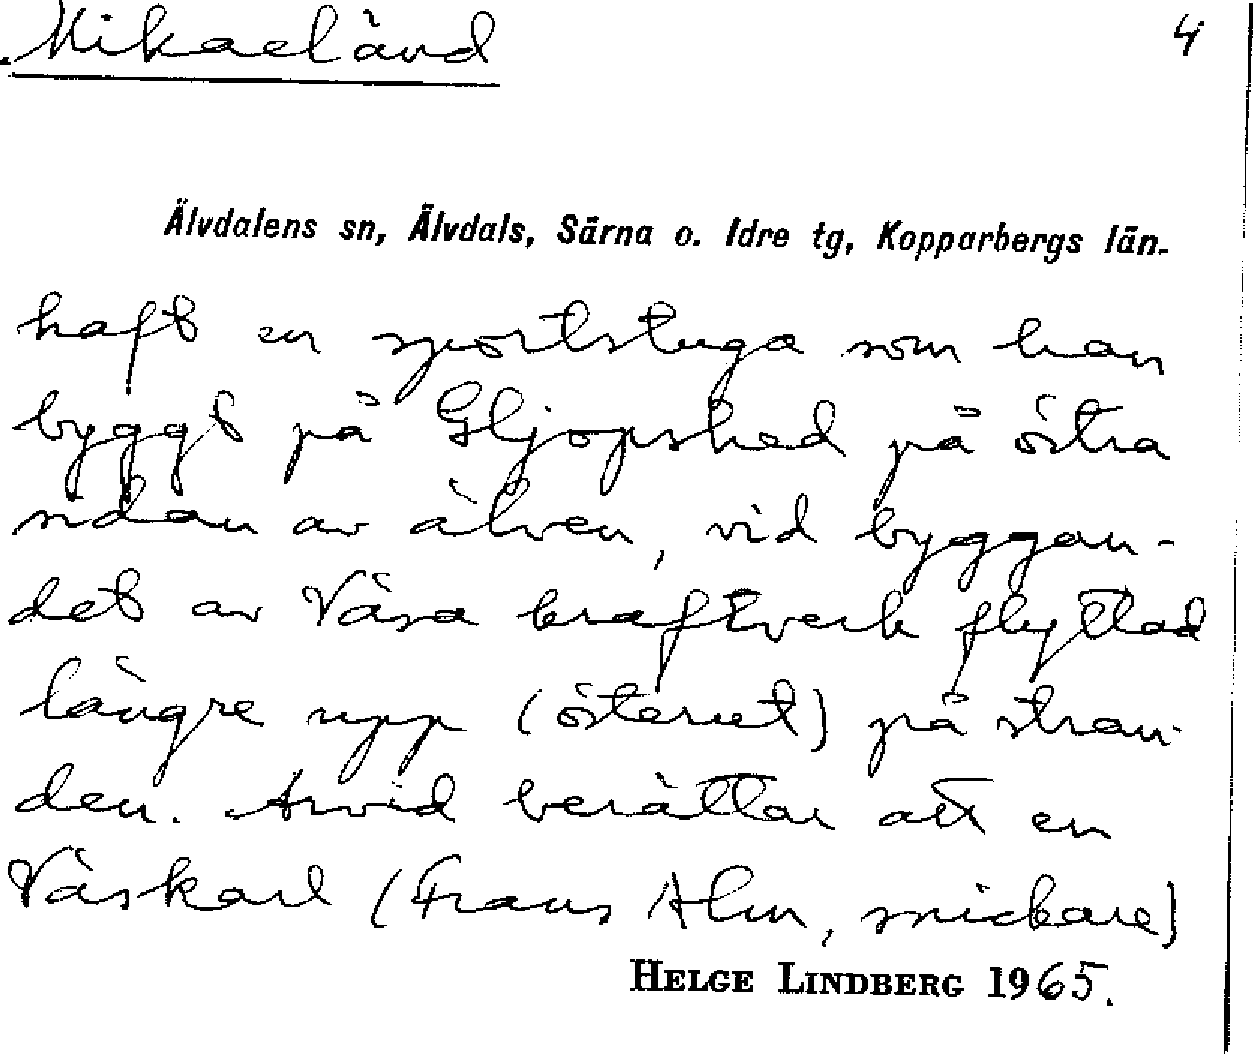 Mikaeländ 4
Älvdalens sn, Älvdals, Särna o. Idre tg, Kopparbergs län.
haft en sportstuga som han
byggt på Gljopshed på östra
sidan av älven, vid byggan-
det av Våsa kraftverk flyttad
längre upp (österut) på stran-
den. Arvid berättar att en
Våskarl (Frans Alm, snickare)
HELGE LINDBERG 1965.